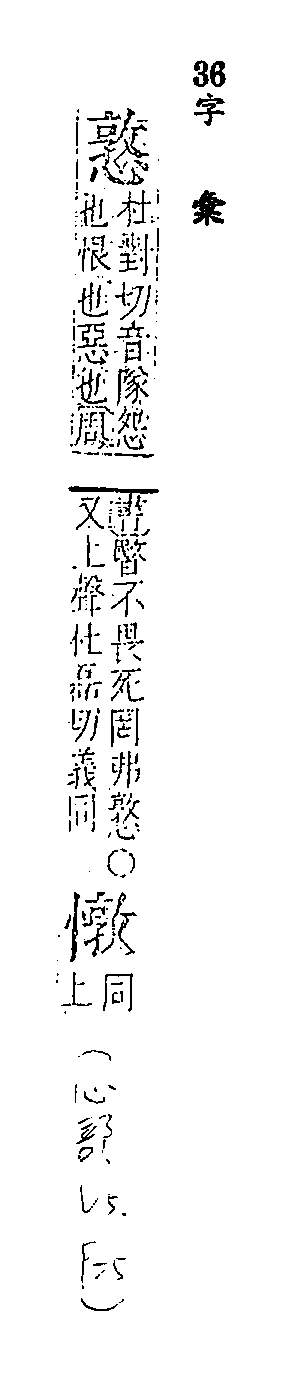 36字 彙
憝
杜對切音隊怨
也恨也惡也周
書暋不畏死罔弗憝○
又上聲仕磊切義同
憞
同
上
(心部 V5. F25)